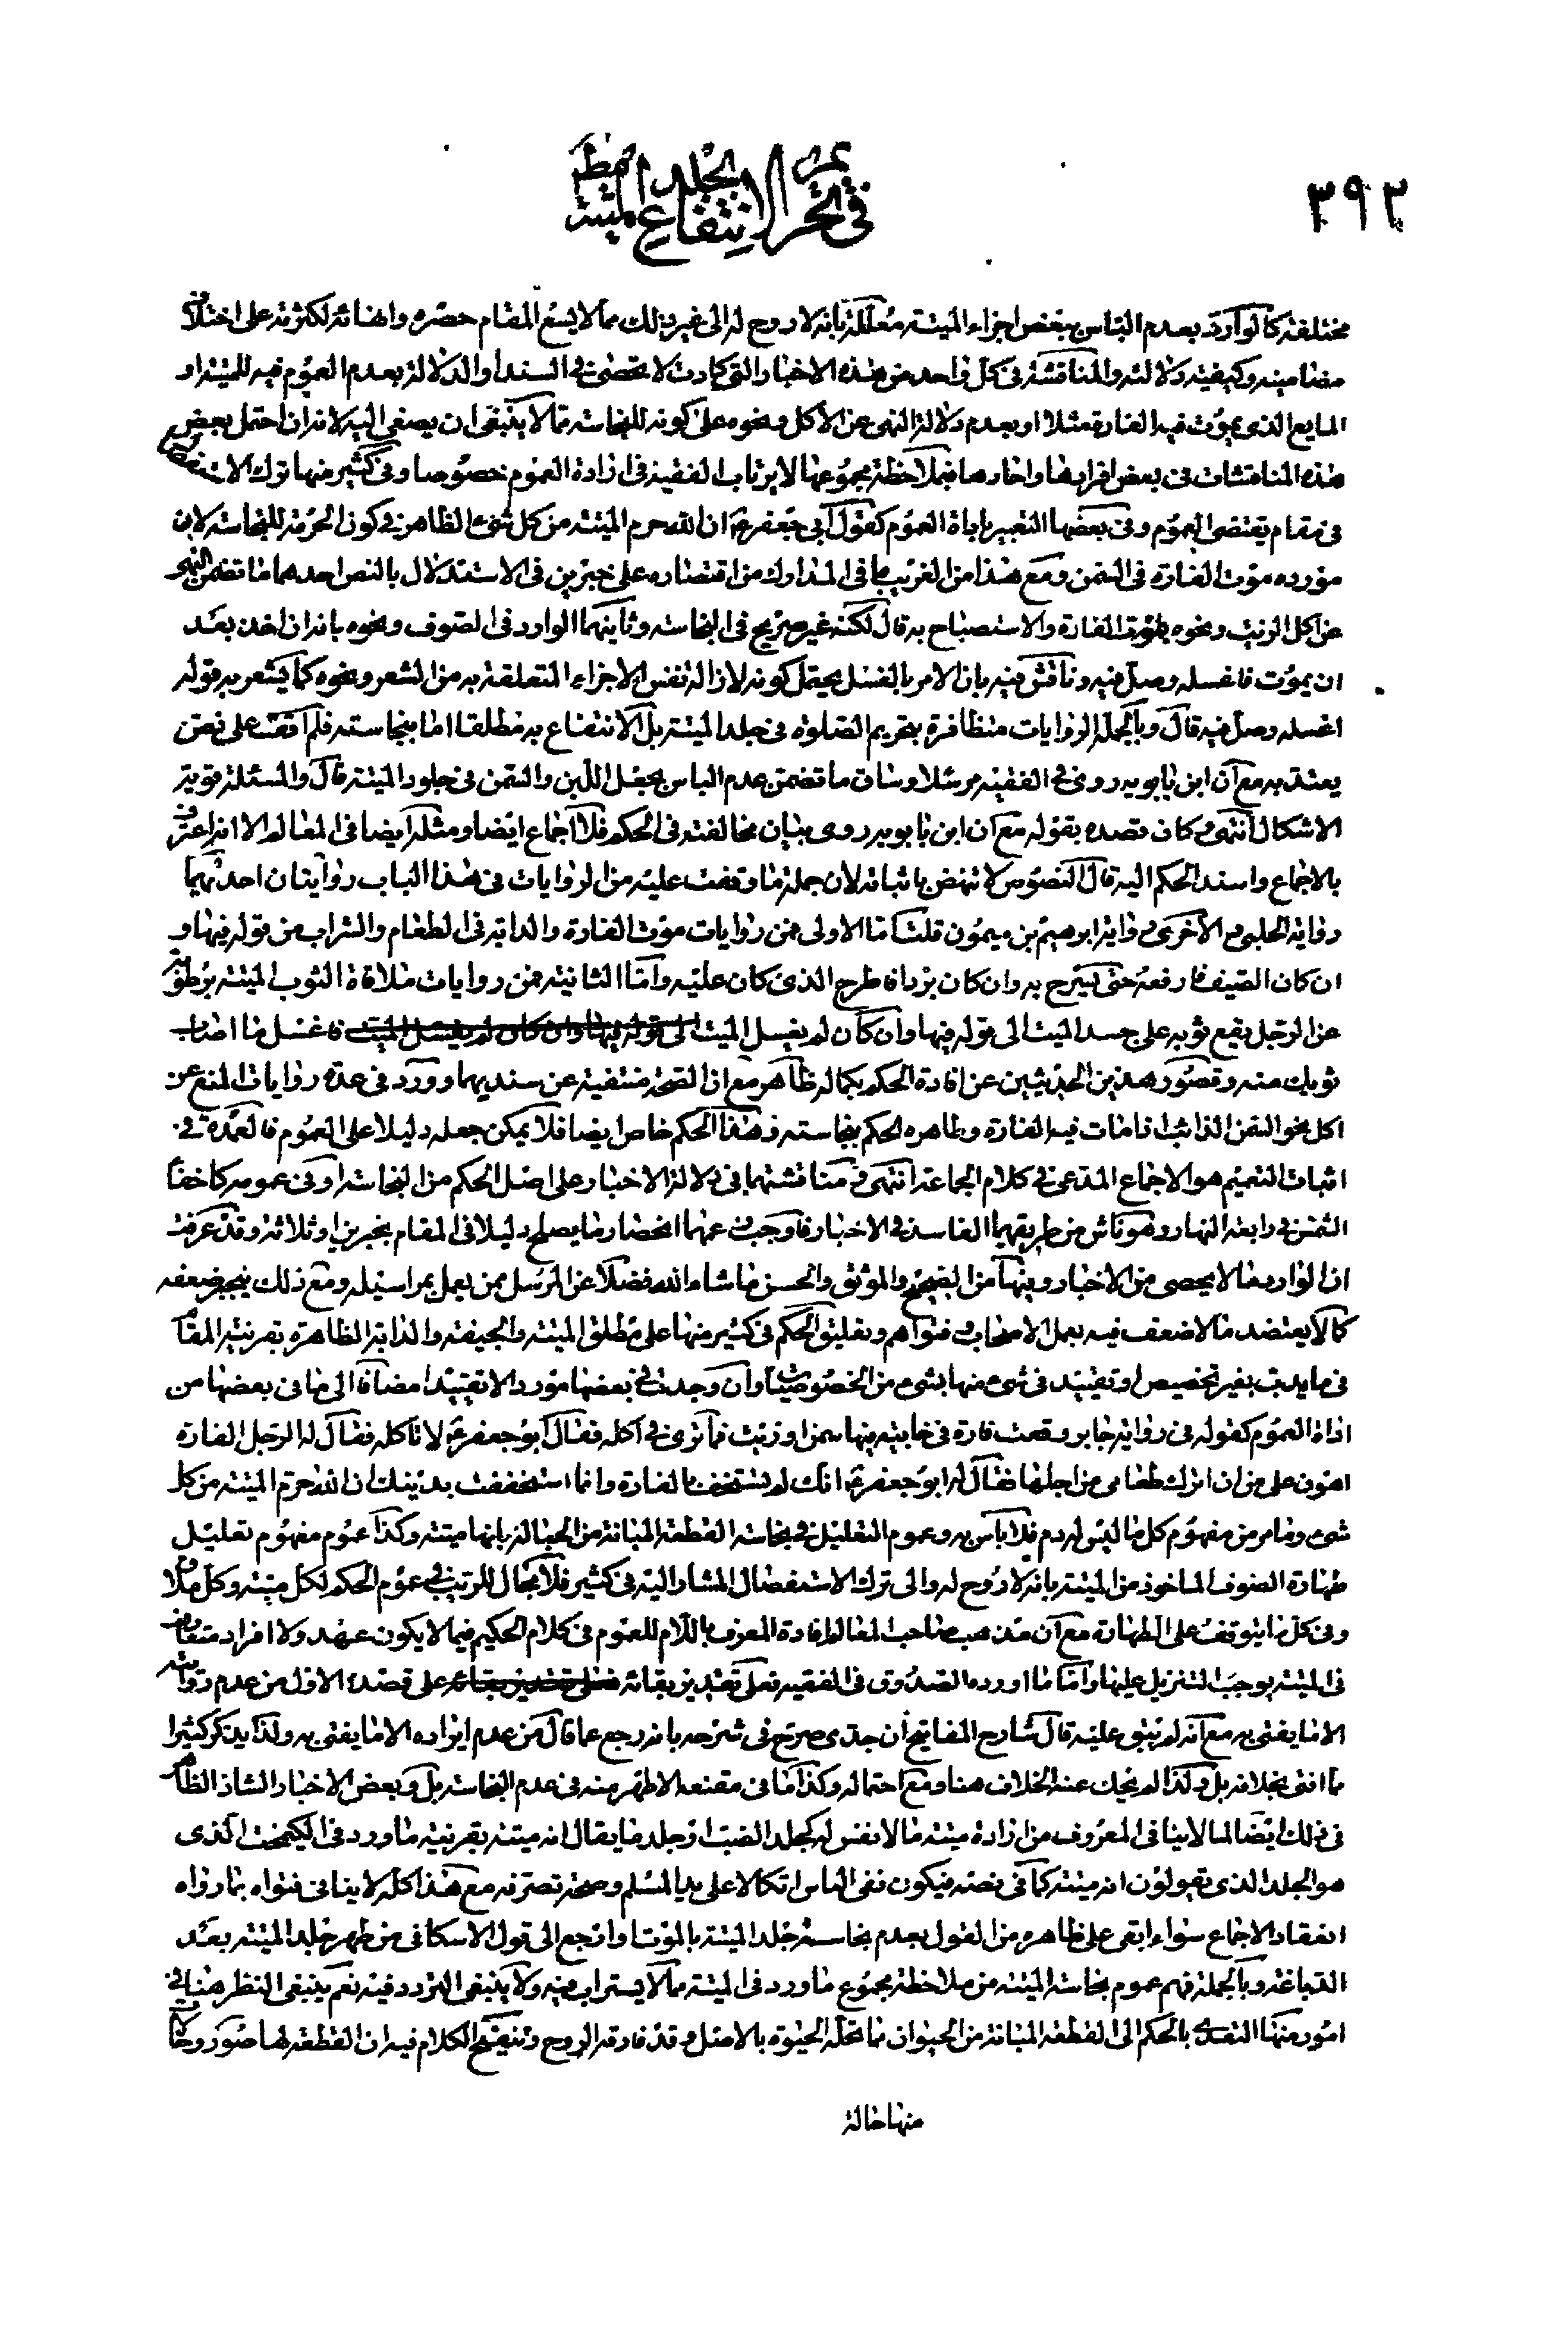 ٣٩٢
في تحريم الانتفاع بجلد الميتة مطلقا
مختلفة كالوارد بعدم الباس ببعض اجزاء الميتة معللة بانه لا روح له الى غير ذلك مما لا يسع المقام حصره وانهائه لكثرته على اختلاف
مضامينه وكيفية دلالته والمناقشة في كل واحد من هذه الاخبار التي كادت لا تحصى في السند او الدلالة بعدم العموم فيه للميتة او
المايع الذي يموت فيه الفارة مثلا او بعدم دلالة النهي عن الاكل ونحوه على كونه للنجاسة مما لا ينبغي ان يصغى اليه لانه ان احتمل بعض
هذه المناقشات في بعض افرادها واحادها فبملاحظة مجموعها لا يرتاب الفقيه في ارادة العموم خصوصا وفي كثير منها ترك الاستفصال
في مقام يقتضي العموم وفي بعضها التعبير باداة العموم كقول ابي جعفر ع ان الله حرم الميتة من كل شئ الظاهر في كون الحرمة للنجاسة لان
مورده موت الفارة في السمن ومع هذا من الغريب ما في المدارك من اقتصاره على خبرين في الاستدلال بالنص احدهما ما تضمن النهي
عن اكل الزيت ونحوه بموت الفارة والاستصباح به قال لكنه غير صريح في النجاسة وثانيهما الوارد في الصوف ونحوه بانه ان اخذ بعد
ان يموت فاغسله وصل فيه وناقش فيه بان الامر بالغسل يحتمل كونه لازالة نفس الاجزاء المتعلقة به من الشعر ونحوه كما يشعر به قوله
اغسله وصل فيه قال وبالجملة الروايات متظافرة بتحريم الصلوة في جلد الميتة بل الانتفاع به مطلقا اما بنجاسته فلم اقف على نص
يعتد به مع ان ابن بابويه روى في الفقيه مرسلا وساق ما تضمن عدم الباس بجعل اللبن والسمن في جلود الميتة قال والمسئلة قوية
الاشكال انتهى وكان قصده بقوله مع ان ابن بابويه روى بيان مخالفته في الحكم فلا اجماع ايضا ومثله ايضا في المعالم الا انه اعترف
بالاجماع واسند الحكم اليه قال النصوص لا تنهض باثباته لان جملة ما وقفت عليه من الروايات في هذا الباب روايتان احديهما
رواية الحلبي و الاخرى رواية ابرهيم بن ميمون قلت اما الاولى فمن روايات موت الفارة والدابة في الطعام والشراب من قوله فيها و
ان كان الصيف فارفعه حتى تسرج به وان كان بردا فاطرح الذي كان عليه واما الثانية فمن روايات ملاقاة الثوب الميتة برطوبة
عن الرجل يقع ثوبه على جسد الميت الى قوله فيها وان كان لم يغسل الميت فاغسل ما اصاب
ثوبك منه وقصور هذين الحديثين عن افادة الحكم بكماله ظاهر مع ان الصحة منتفية عن سنديهما وورد في عدة روايات المنع عن
اكل نحو السمن الذائب اذا مات فيه الفارة وظاهره الحكم بنجاسته وهذا الحكم خاص ايضا فلا يمكن جعله دليلا على العموم فالعمدة في
اثبات التعميم هو الاجماع المدعى في كلام الجماعة انتهى فمناقشتهما في دلالة الاخبار على اصل الحكم من النجاسة او في عمومه كاخفاء
الشمس في رابعة النهار وهو ناش من طريقهما الفاسد في الاخبار فاوجب زعمهما انحصار ما يصلح دليلا في المقام بخبرين او ثلاثة وقد عرفت
ان الوارد مما لا يحصى من الاخبار وبينها من الصحيح والموثق والحسن ما شاء الله فضلا عن المرسل ممن يعمل بمراسيله ومع ذلك ينجبر ضعفه
كما يعتضد ما لا ضعف فيه بعمل الاصحاب و فتواهم وتعليق الحكم في كثير منها على مطلق الميتة والجيفة والدابة الظاهرة بقرينة المقام
في ما يدب بغير تخصيص او تقييد في شئ منها بشئ من الخصوصيات وان وجدت في بعضها موردا لا تقييدا مضافا الى ما في بعضها من
اداة العموم كقوله في رواية جابر وقعت فارة في خابية فيها سمن او زيت فما ترى في اكله فقال ابو جعفر ع لا تاكله فقال له الرجل الفارة
اهون علي من ان اترك طعامي من اجلها فقال له ابو جعفر ع انك لم تستخف بالفارة وانما استخففت بدينك ان الله حرم الميتة من كل
شئ وما مر من مفهوم كل ما ليس له دم فلا باس به وعموم التعليل في نجاسة القطعة المبانة من الحبالة بانها ميتة وكذا عموم مفهوم تعليل
طهارة الصوف الماخوذ من الميتة بانه لا روح له والى ترك الاستفصال المشار اليه في كثير فلا مجال للريب في عموم الحكم لكل ميتة وكل ملاق
وفي كل ما يتوقف على الطهارة مع ان مذهب صاحب المعالم افادة المعرف باللام للعموم في كلام الحكيم فيما لا يكون عهد ولا افراد متعارف
في الميتة يوجب التنزيل عليها واما ما اورده الصدوق في الفقيه فعلى تقدير بقائه على قصده الاول من عدم روايته
الا ما يفتي به مع انه لم يبق عليه قال شارح المفاتيح ان جدي صرح في شرحه بانه رجع عما قال من عدم ايراده الا ما يفتي به ولذا يذكر كثيرا
ما افتى بخلافه بل ولذا لم يحك عنه الخلاف هنا ومع احتماله وكذا ما في مقنعه الاظهر منه في عدم النجاسة بل وبعض الاخبار الشاذ الظاهر
في ذلك ايضا لما لا ينافي المعروف من ارادة ميتة ما لا نفس له كجلد الضب او جلد ما يقال انه ميتة بقرينة ما ورد في الكيمخت الذي
هو الجلد الذي يقولون انه ميتة كما في نصه فيكون نفي الباس اتكالا على يد المسلم وصحة تصرفه مع هذا كله لا ينافي فتواه بما رواه
انعقاد الاجماع سواء ابقي على ظاهره من القول بعدم نجاسة جلد الميتة بالموت او ارجع الى قول الاسكافي من طهر جلد الميتة بعد
الدباغة وبالجملة فهم عموم نجاسة الميتة من ملاحظة مجموع ما ورد في الميتة مما لا يستراب فيه ولا ينبغي التردد فيه نعم ينبغي النظر هنا في
امور منها التعدي بالحكم الى القطعة المبانة من الحيوان مما تحله الحيوة بالاصل وقد فارقه الروح وتنقيح الكلام فيه ان القطعة لها صور وحالات
منها حالة